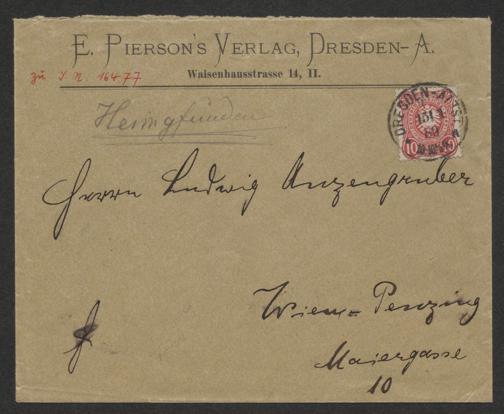 E. PIERSON'S VERLAG, DRESDEN-A.
Waisenhausstrasse 14, II.
zu I. N. 16477
DRESDEN-ALTST.
10
Herrn Ludwig Anzengruber
Wien-Penzing
Maiergasse
10